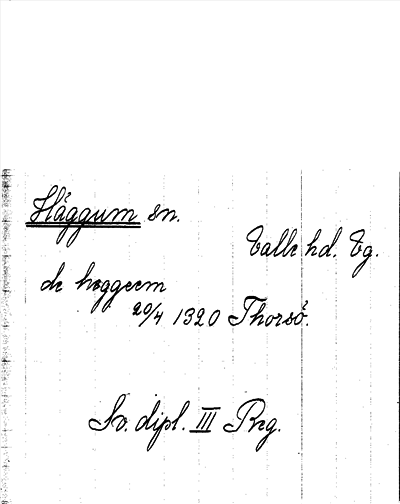 Häggum sn.
Valle hd. Vg.
de heggeem
20/4 1320 Thorsö.
Sv. dipl. III Reg.